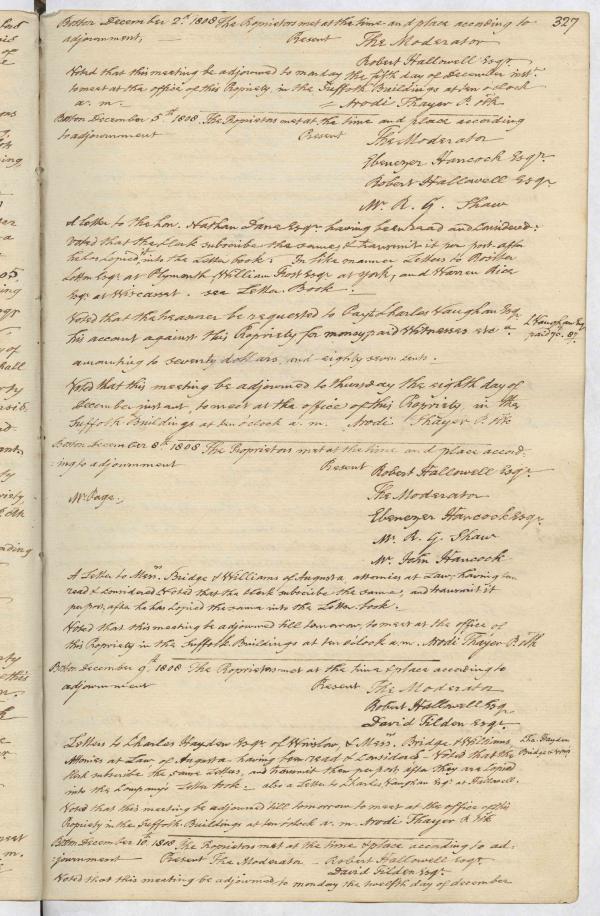 327
Boston December 2d. 1808 The Proprietors met at the time and place according to
adjournment, Present The Moderator
Robert Hallowell Esqr.
Voted that this meeting be adjourned to monday the fifth day of December inst.
to meet at the office of this Propriety in the Suffolk Buildings at ten o'clock
a. m. Arodi Thayer P. Clk
Boston December 5th. 1808. The Proprietors met at the time and place according
to adjournment Present The Moderator
Ebenezer Hancock Esqr.
Robert Hallowell Esqr.
Mr. R. G. Shaw
A Letter to the hon. Nathan Dane Esqr. having been read and Considered:
Voted that the Clerk subscribe the same & transmit it per post after
he has Copied it into the Letter Book. In like manner Letters to Rositer
Cotton Esqr. at Plymouth, William Frost Esqr. at York, and Warren Rice
Esqr. at Wiscasset. see Letter Book.
Voted that the treasurer be requested to Pay Charles Vaughan Esqr.
his account against this Propriety for money paid Witnesses &c a.
C Vaughan Esqr.
paid 70. 87.
amounting to seventy dollars and eighty seven cents.
Voted that this meeting be adjourned to thursday the eighth day of
December instant, to meet at the office of this Propriety, in the
Suffolk Buildings at ten o'clock a. m. Arodi Thayer P. Clk
Boston December 8th. 1808 The Proprietors met at the time and place accord-
:ing to adjournment Present Robert Hallowell Esqr.
Mr. Page., The Moderator
Ebenezer Hancock Esqr.
Mr. R. G. Shaw
Mr. John Hancock
A Letter to Messrs. Bridge & Williams of Augusta, attornies at Law, having been
read & Considered Voted that the Clerk subscribe the same, and transmit it
per post, after he has Copied the same into the Letter book.
Voted that this meeting be adjourned till tomorrow, to meet at the office of
this Propriety in the Suffolk Buildings at ten o'clock a.m. Arodi Thayer P. Clk
Boston December 9th. 1808 The Proprietors met at the time & place according to
adjournment Present The Moderator
Robert Hallowell Esqr.
David Tilden Esqr.
Letters to Charles Hayden Esqr. of Winslow, & Messrs. Bridge & Williams
Attornies at Law of Augusta - having been read & Considered - Voted that the
Cha. Hayden
Bridge & Wms
Clerk subscribe the same Letters, and transmit them per post after they are Copied
into the Company's Letter book - also a Letter to Charles Vaughan Esqr. at Hallowell.
Voted that this meeting be adjourned till tomorrow to meet at the office of this
Propriety in the Suffolk Buildings at ten o'clock a. m. Arodi Thayer P. Clk
Boston December 10th. 1808. The Proprietors met at the time & place according to ad-
:journment Present The Moderator - Robert Hallowell Esqr.
David Tilden Esqr.
Voted that this meeting be adjourned to monday the twelfth day of December